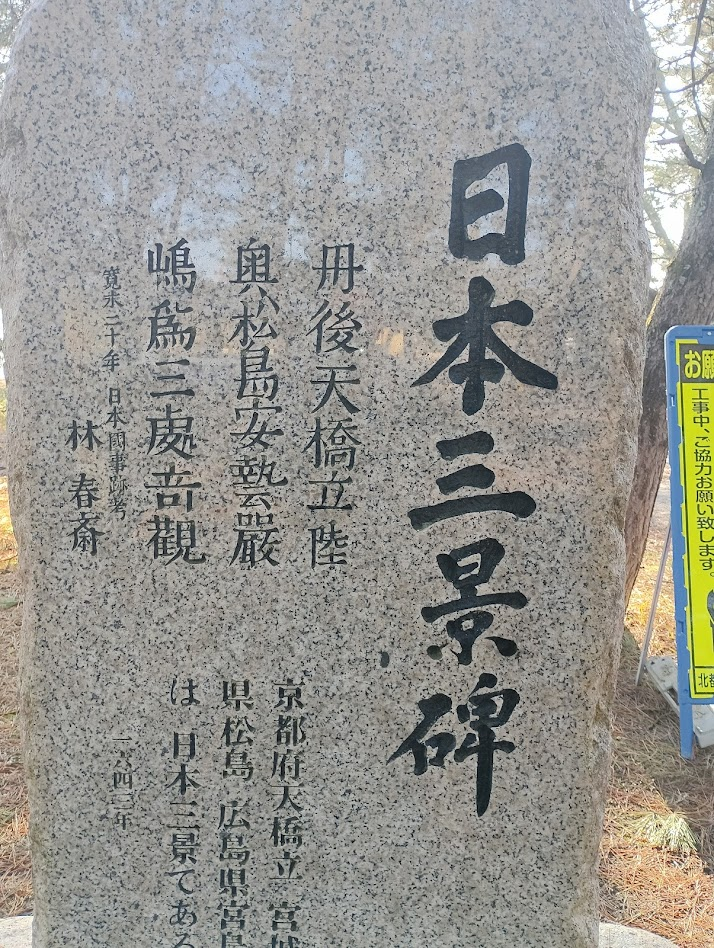 日本三景碑
丹後天橋立陸
奥松島安藝嚴
嶋爲三處奇觀
寛永二十年 日本國事跡考
林 春斎
京都府天橋立 宮城
県松島 広島県宮島
は 日本三景である
一六四三年
お願
工事中、ご協力お願い致します。
北都